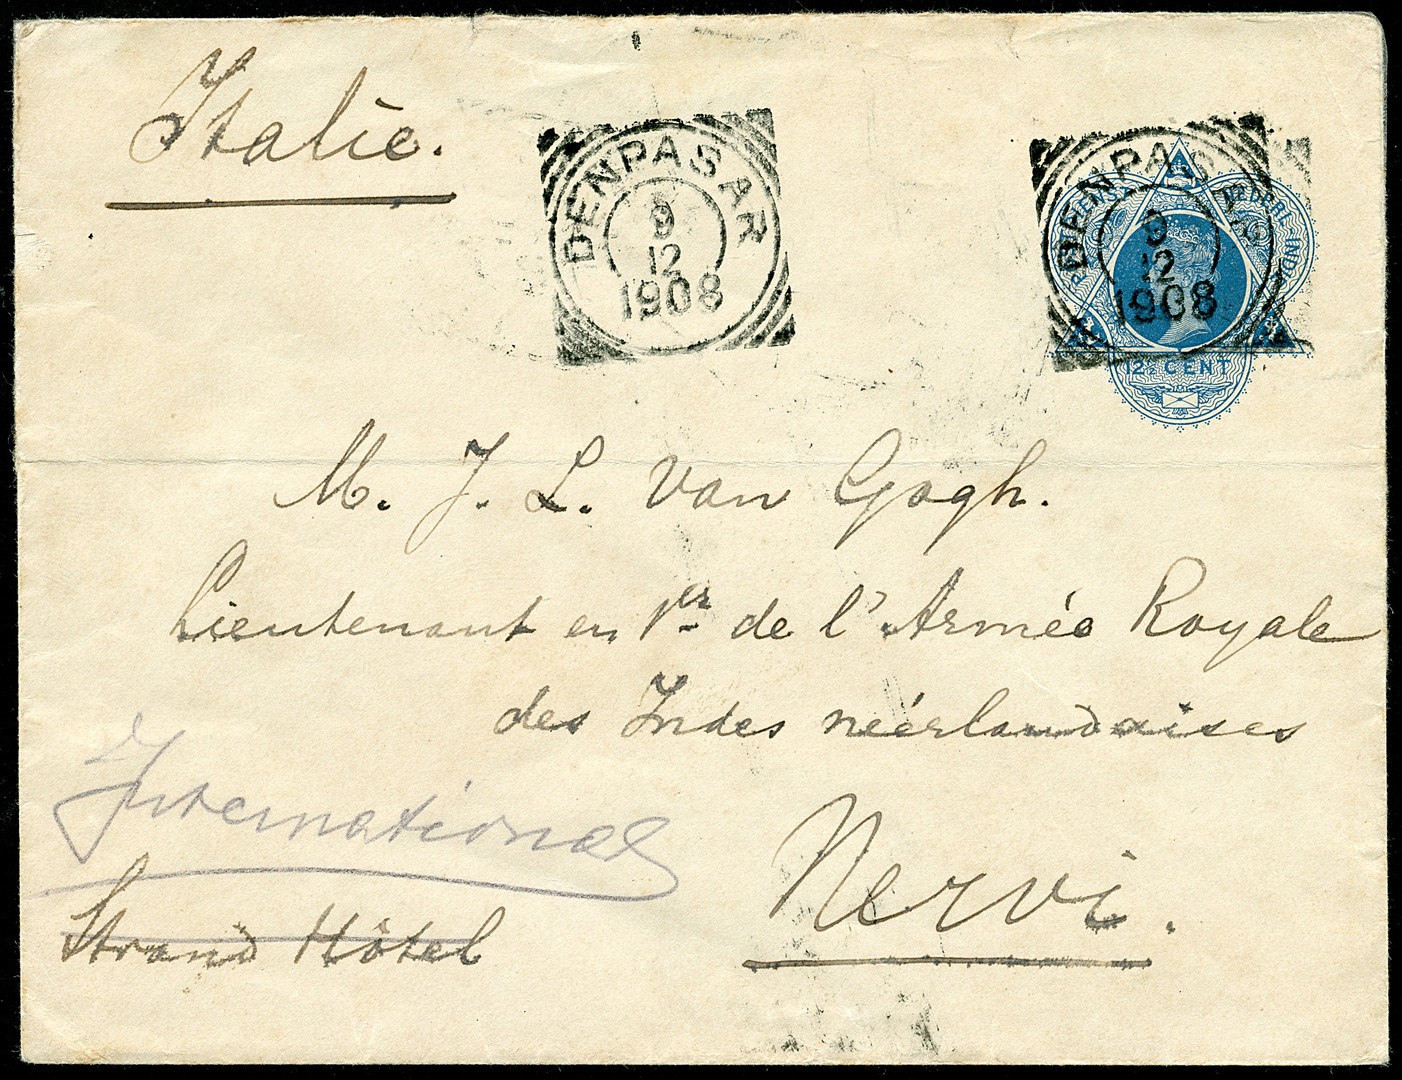 Italie.
DENPASAR
9
12
1908
DENPASAR
9
12
1908
NEDERL. INDIË
12½ CENT
M. J. L. van Gogh.
Lieutenant en 1er de l'Armée Royale
des Indes néerlandaises
International
Strand Hôtel
Nervi.